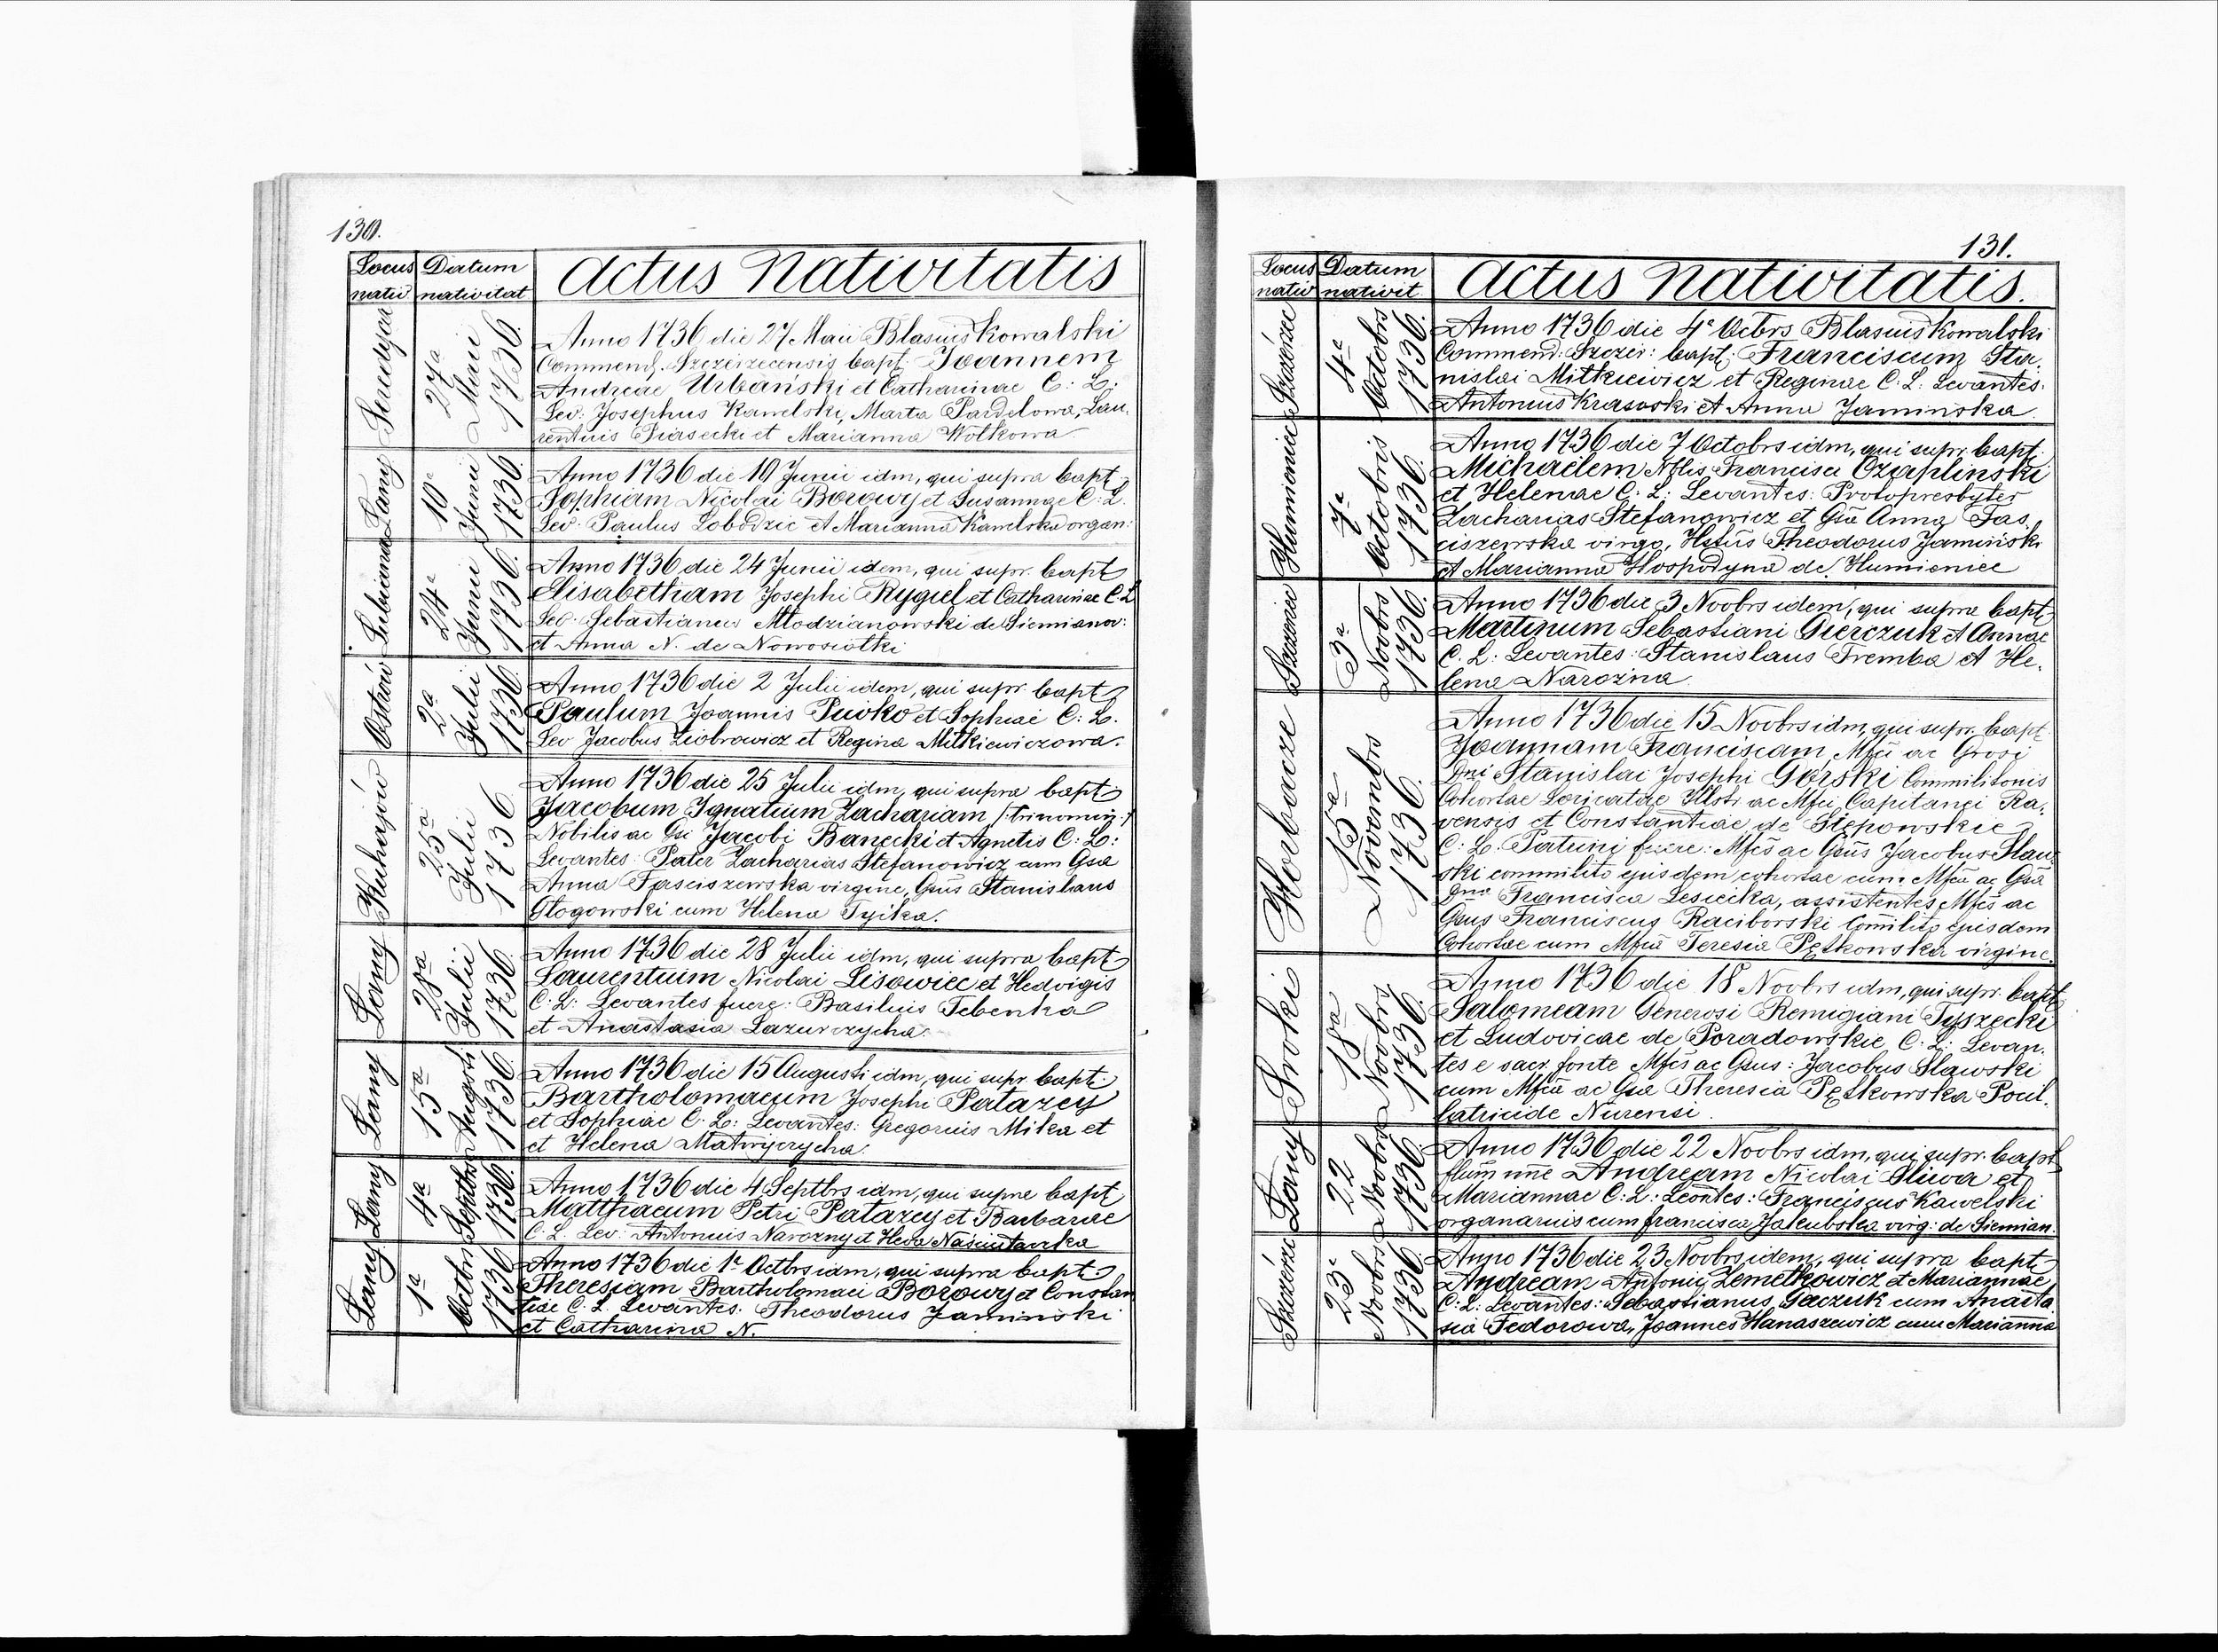 130.
Locus Datum Actus Nativitatis
nativ nativitat
27ª Maii 1736.
Anno 1736 die 27 Maii Blasius Kowalski
Commend. Szczerzecensis bapt. Joannem
Andreae Urbański et Catharinae C: L:
Lev: Josephus Kawelski, Marta Pardelowa, Lau-
rentius Piasecki et Marianna Wołkowa
Łany
10ª Junii 1736
Anno 1736 die 10 Junii idm, qui supra bapt
Sophiam Nicolai Borowy et Susannae C: L.
Lev: Paulus Łobodzic et Marianna Kawelska organ:
Lubiana
24ª Junii 1736.
Anno 1736 die 24 Junii idem, qui supr. bapt
Elisabetham Josephi Rygiel et Catharinae C L
Lev. Sebastianus Młodzianowski de Siemianow:
et Anna N. de Nowosiołki
Ostrów
2ª Julii 1736
Anno 1736 die 2 Julii idem, qui supr. bapt
Paulum Joannis Puvko et Sophiae C: L.
Lev Jacobus Ziobrowicz et Regina Mitkiewiczowa.
Kuhajów
25ª Julii 1736
Anno 1736 die 25 Julii idm, qui supra bapt
Jacobum Ignatium Zachariam /:trinomin:/
Nobilis ac Gsi Jacobi Banecki et Agnetis C: L:
Levantes: Pater Zacharias Stefanowicz cum Gsa
Anna Fasciszewska virgine, Gsus Stanislaus
Głogowski cum Helena Tyika.
Łany
28ª Julii 1736
Anno 1736 die 28 Julii idm, qui supra bapt
Laurentium Nicolai Lisowiec et Hedvigis
C: L: Levantes fuere: Basilius Tebenka
et Anastasia Lazurczycha.
Łany
15ª Augusti 1736
Anno 1736 die 15 Augusti idm, qui supr bapt.
Bartholomaeum Josephi Patazey
et Sophiae C: L: Levantes: Gregorius Mika et
et Helena Matwijczycha.
Łany
4ª Septbr 1736.
Anno 1736 die 4 Septbrs idm, qui supra bapt
Matthaeum Petri Patazey et Barbarae
C. L. Lev: Antonius Narozny et Heva
Łany
1ª Octbr 1736
Anno 1736 die 1ª Octbrs idm, qui supra bapt.
Theresiam Bartholomaei Borowy et Constan
tiae C. L. Levantes: Theodorus Jaminski
et Catharina N.
131.
Locus Datum Actus Nativitatis.
nativ nativit.
Szczerzec
4ª Octobrs 1736.
Anno 1736 die 4ª Octbrs Blasius Kowalski
Commend: Szczer: bapt: Franciscum Sta-
nislai Mitkiewicz et Reginae C. L: Levantes:
Antonius Krasoski et Anna Jaminska
Humieniec
7ª Octobris 1736.
Anno 1736 die 7 Octobrs idm, qui supr. bapt.
Michaëlem Nblis Francisci Czaplinski
et Helenae C. L: Levantes: Protopresbyter
Zacharias Stefanowicz et Gsa Anna Fas
ciszewska virgo, Hstus Theodorus Jaminski
et Marianna Hospodyna de Humieniec
3ª Novbrs 1736.
Anno 1736 die 3 Novbrs idem, qui supra bapt
Martinum Sebastiani Gierczuk et Annae
C. L: Levantes: Stanislaus Tremba et He-
lena Narozna
Horbacze
15ª Novembrs 1736.
Anno 1736 die 15 Novbrs idm, qui supr. bapt
Joannam Franciscam Mfci ac Grosi
Dni Stanislai Josephi Gorski Commilitonis
Cohortae Loricatae Illstr ac Mfci Capitanei Ra-
vensis et Constantiae de Stępowskie
C: L. Patrini fuere: Mfcs ac Gsus Jacobus Slaw
ski commilito ejusdem cohortae cum Mfca ac Gsa
Dna Francisca Lesiecka, assistentes Mfcs ac
Gsus Franciscus Raciborski Comilito ejusdem
Cohortae cum Mfca Teresia Pętkowska virgine.
Sroki
18ª Novbrs 1736.
Anno 1736 die 18 Novbrs idm, qui supr. bapt
Salomeam Generosi Remigiani Tyszecki
et Ludovicae de Poradowskie C. L: Levan-
tes e sacr. fonte Mfcs ac Gsus: Jacobus Slawski
cum Mfca ac Gsa Theresia Pętkowska Pocil-
latricide Nurensi.
Łany
22 Novbrs 1736.
Anno 1736 die 22 Novbrs idm, qui supr. bapt
flum nne Andream Nicolai Oliwa et
Mariannae C: L: Leontes: Franciscus Kawelski
organarius cum francisca Jakubska virg: de Siemian.
Szczerzec
23ª Novbrs 1736.
Anno 1736 die 23 Novbrs idem, qui supra bapt
Andream Antonii Zemełkowicz et Mariannae
C: L: Levantes: Sebastianus Gaczuk cum Anasta
sia Fedorowa, Joannes Hanaszewicz cum Marianna